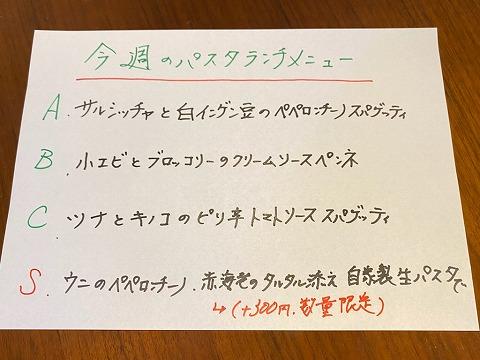 今週のパスタランチメニュー
A. サルシッチャと白インゲン豆のペペロンチーノスパゲッティ
B. 小エビとブロッコリーのクリームソースペンネ
C. ツナとキノコのピリ辛トマトソーススパゲッティ
S. ウニのペペロンチーノ. 赤海老のタルタル添え 自家製生パスタで
↳(+300円. 数量限定)